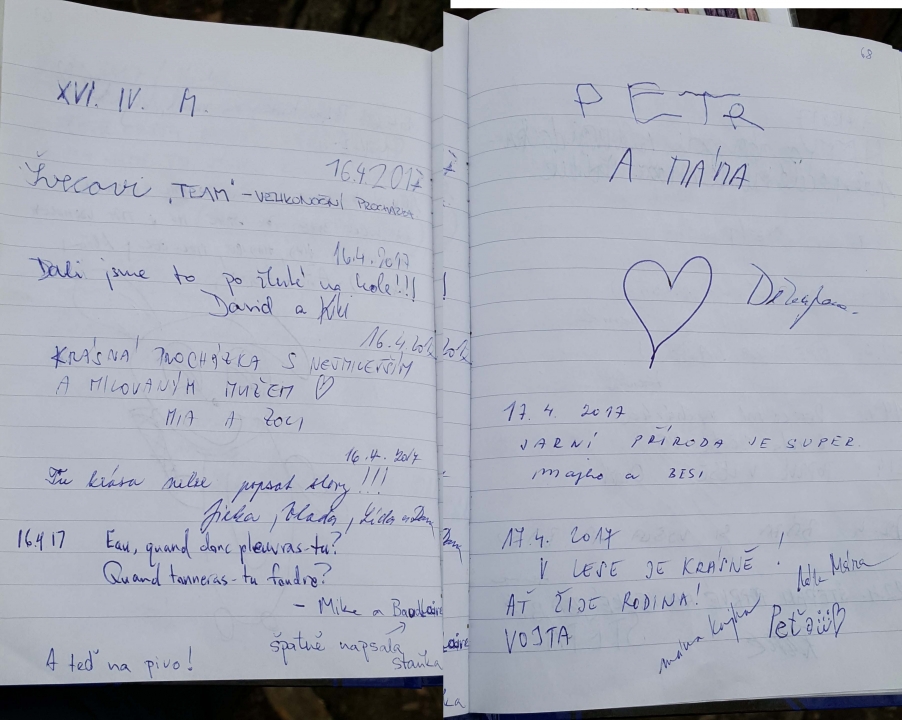 XVI. IV. M.
16.4.2017
Švecovi „TEAM" – VELIKONOČNÍ PROCHÁZKA
16.4.2017
Dali jsme to po žluté na kole!!!
David a Kiki
16.4.2017
KRÁSNÁ PROCHÁZKA S NEJMILEJŠÍM
A MILOVANÝM MUŽEM ♡
MIA A
16.4.2017
Tu krásu nelze popsat slovy!!!
Jirka, Vlada, Lída a
16.4 17 Eau, quand donc pleuvras-tu?
Quand tonneras-tu foudre?
– Mike a
špatně napsala
staňka
A teď na pivo!
68
PETR
A MÁMA
17. 4. 2017
JARNÍ PŘÍRODA JE SUPER
majho a BESI
17.4. 2017
V LESE JE KRÁSNĚ!
AŤ ŽIJE RODINA!
VOJTA